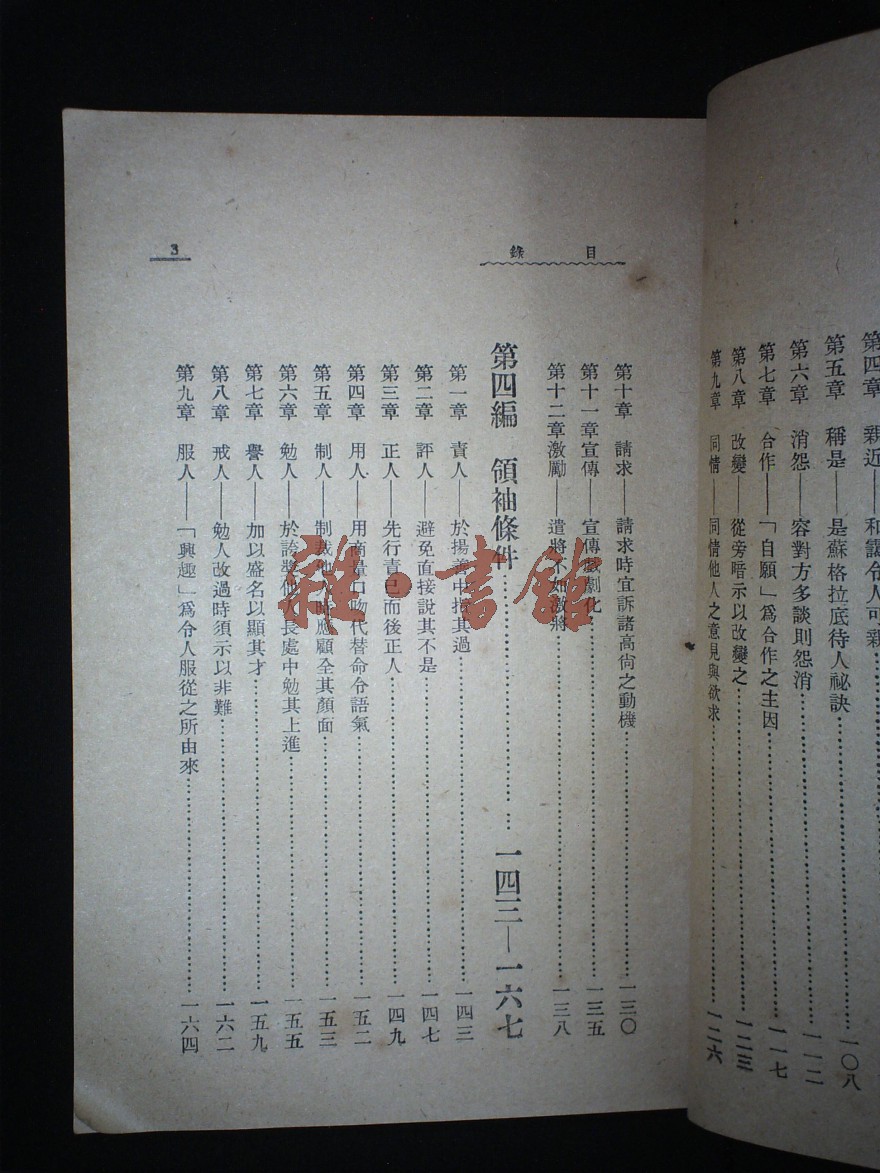 第四章　親近——和藹令人可親
第五章　稱是——是蘇格拉底待人祕訣……一〇八
第六章　消怨——容對方多談則怨消……一一二
第七章　合作——「自願」爲合作之主因……一一七
第八章　改變——從旁暗示以改變之……一二三
第九章　同情——同情他人之意見與欲求……一二六
目錄
3
第十章　請求——請求時宜訴諸高尙之動機……一三〇
第十一章宣傳——宣傳戲劇化……一三五
第十二章激勵——遣將不如激將……一三八
第四編　領袖條件……一四三—一六七
第一章　責人——於揚善中指其過……一四三
第二章　評人——避免直接說其不是……一四七
第三章　正人——先行責己而後正人……一四九
第四章　用人——用商量口吻代替命令語氣……一五二
第五章　制人——制裁他人時應顧全其顏面……一五三
第六章　勉人——於誇獎他人長處中勉其上進……一五五
第七章　譽人——加以盛名以顯其才……一五九
第八章　戒人——勉人改過時須示以非難……一六二
第九章　服人——「興趣」爲令人服從之所由來……一六四
雜·書館